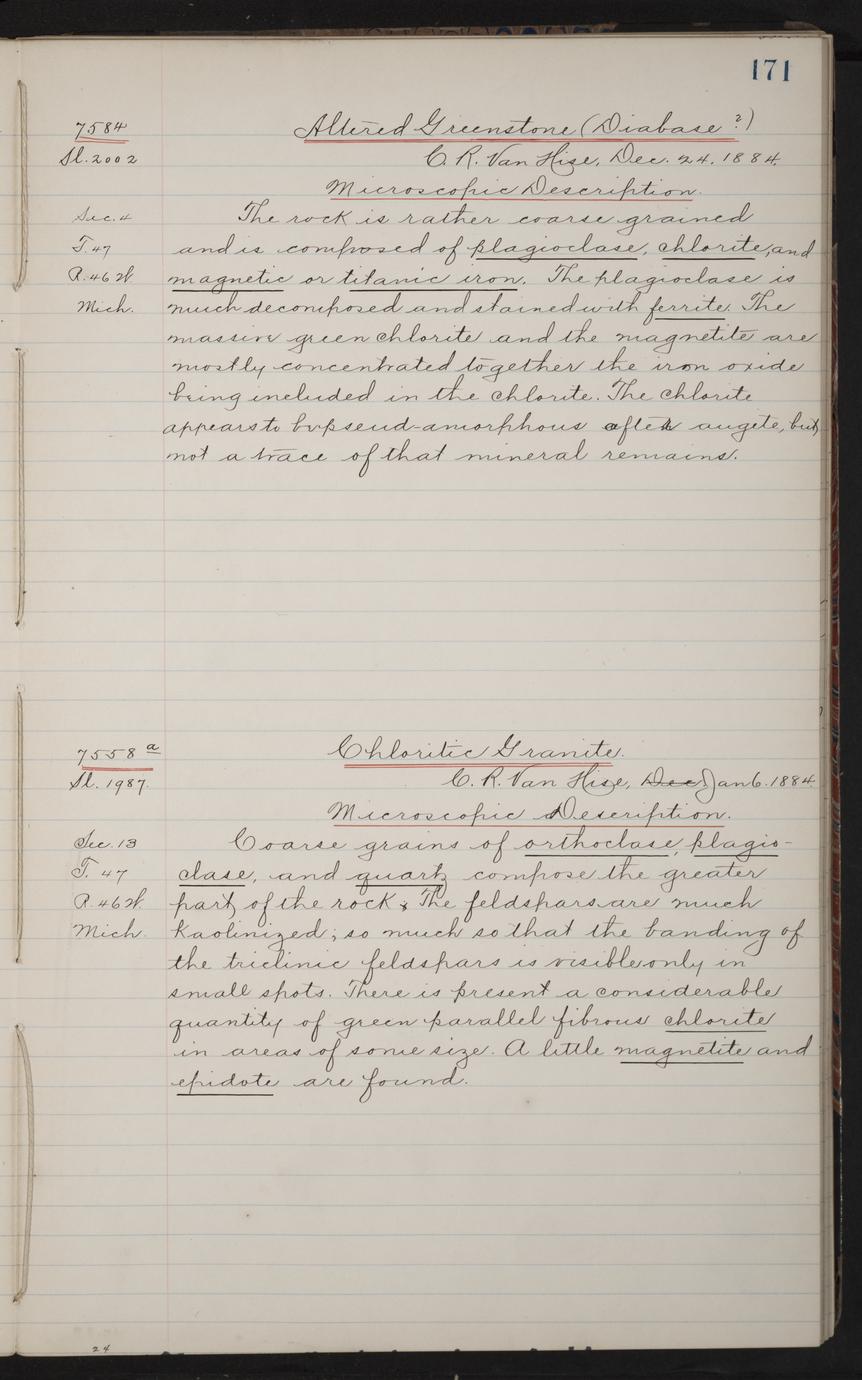 171
7584
Altered Greenstone (Diabase?)
Sl. 2002
C. R. Van Hise, Dec. 24. 1884.
Microscopic Description.
Sec. 4
The rock is rather coarse grained
T. 47
and is composed of plagioclase, chlorite, and
R. 46 W.
magnetic or titanic iron. The plagioclase is
Mich.
much decomposed and stained with ferrite. The
massive green chlorite and the magnetite are
mostly concentrated together the iron oxide
being included in the chlorite. The chlorite
appears to be pseud-amorphous after augite, but
not a trace of that mineral remains.
7558 a
Chloritic Granite.
Sl. 1987.
C. R. Van Hise, Dec. Jan 6. 1884.
Microscopic Description.
Sec. 13
Coarse grains of orthoclase, plagio-
T. 47
clase, and quartz compose the greater
R. 46 W.
part of the rock; The feldspars are much
Mich.
Kaolinized; so much so that the banding of
the triclinic feldspars is visible only in
small spots. There is present a considerable
quantity of green parallel fibrous chlorite
in areas of some size. A little magnetite and
epidote are found.
24